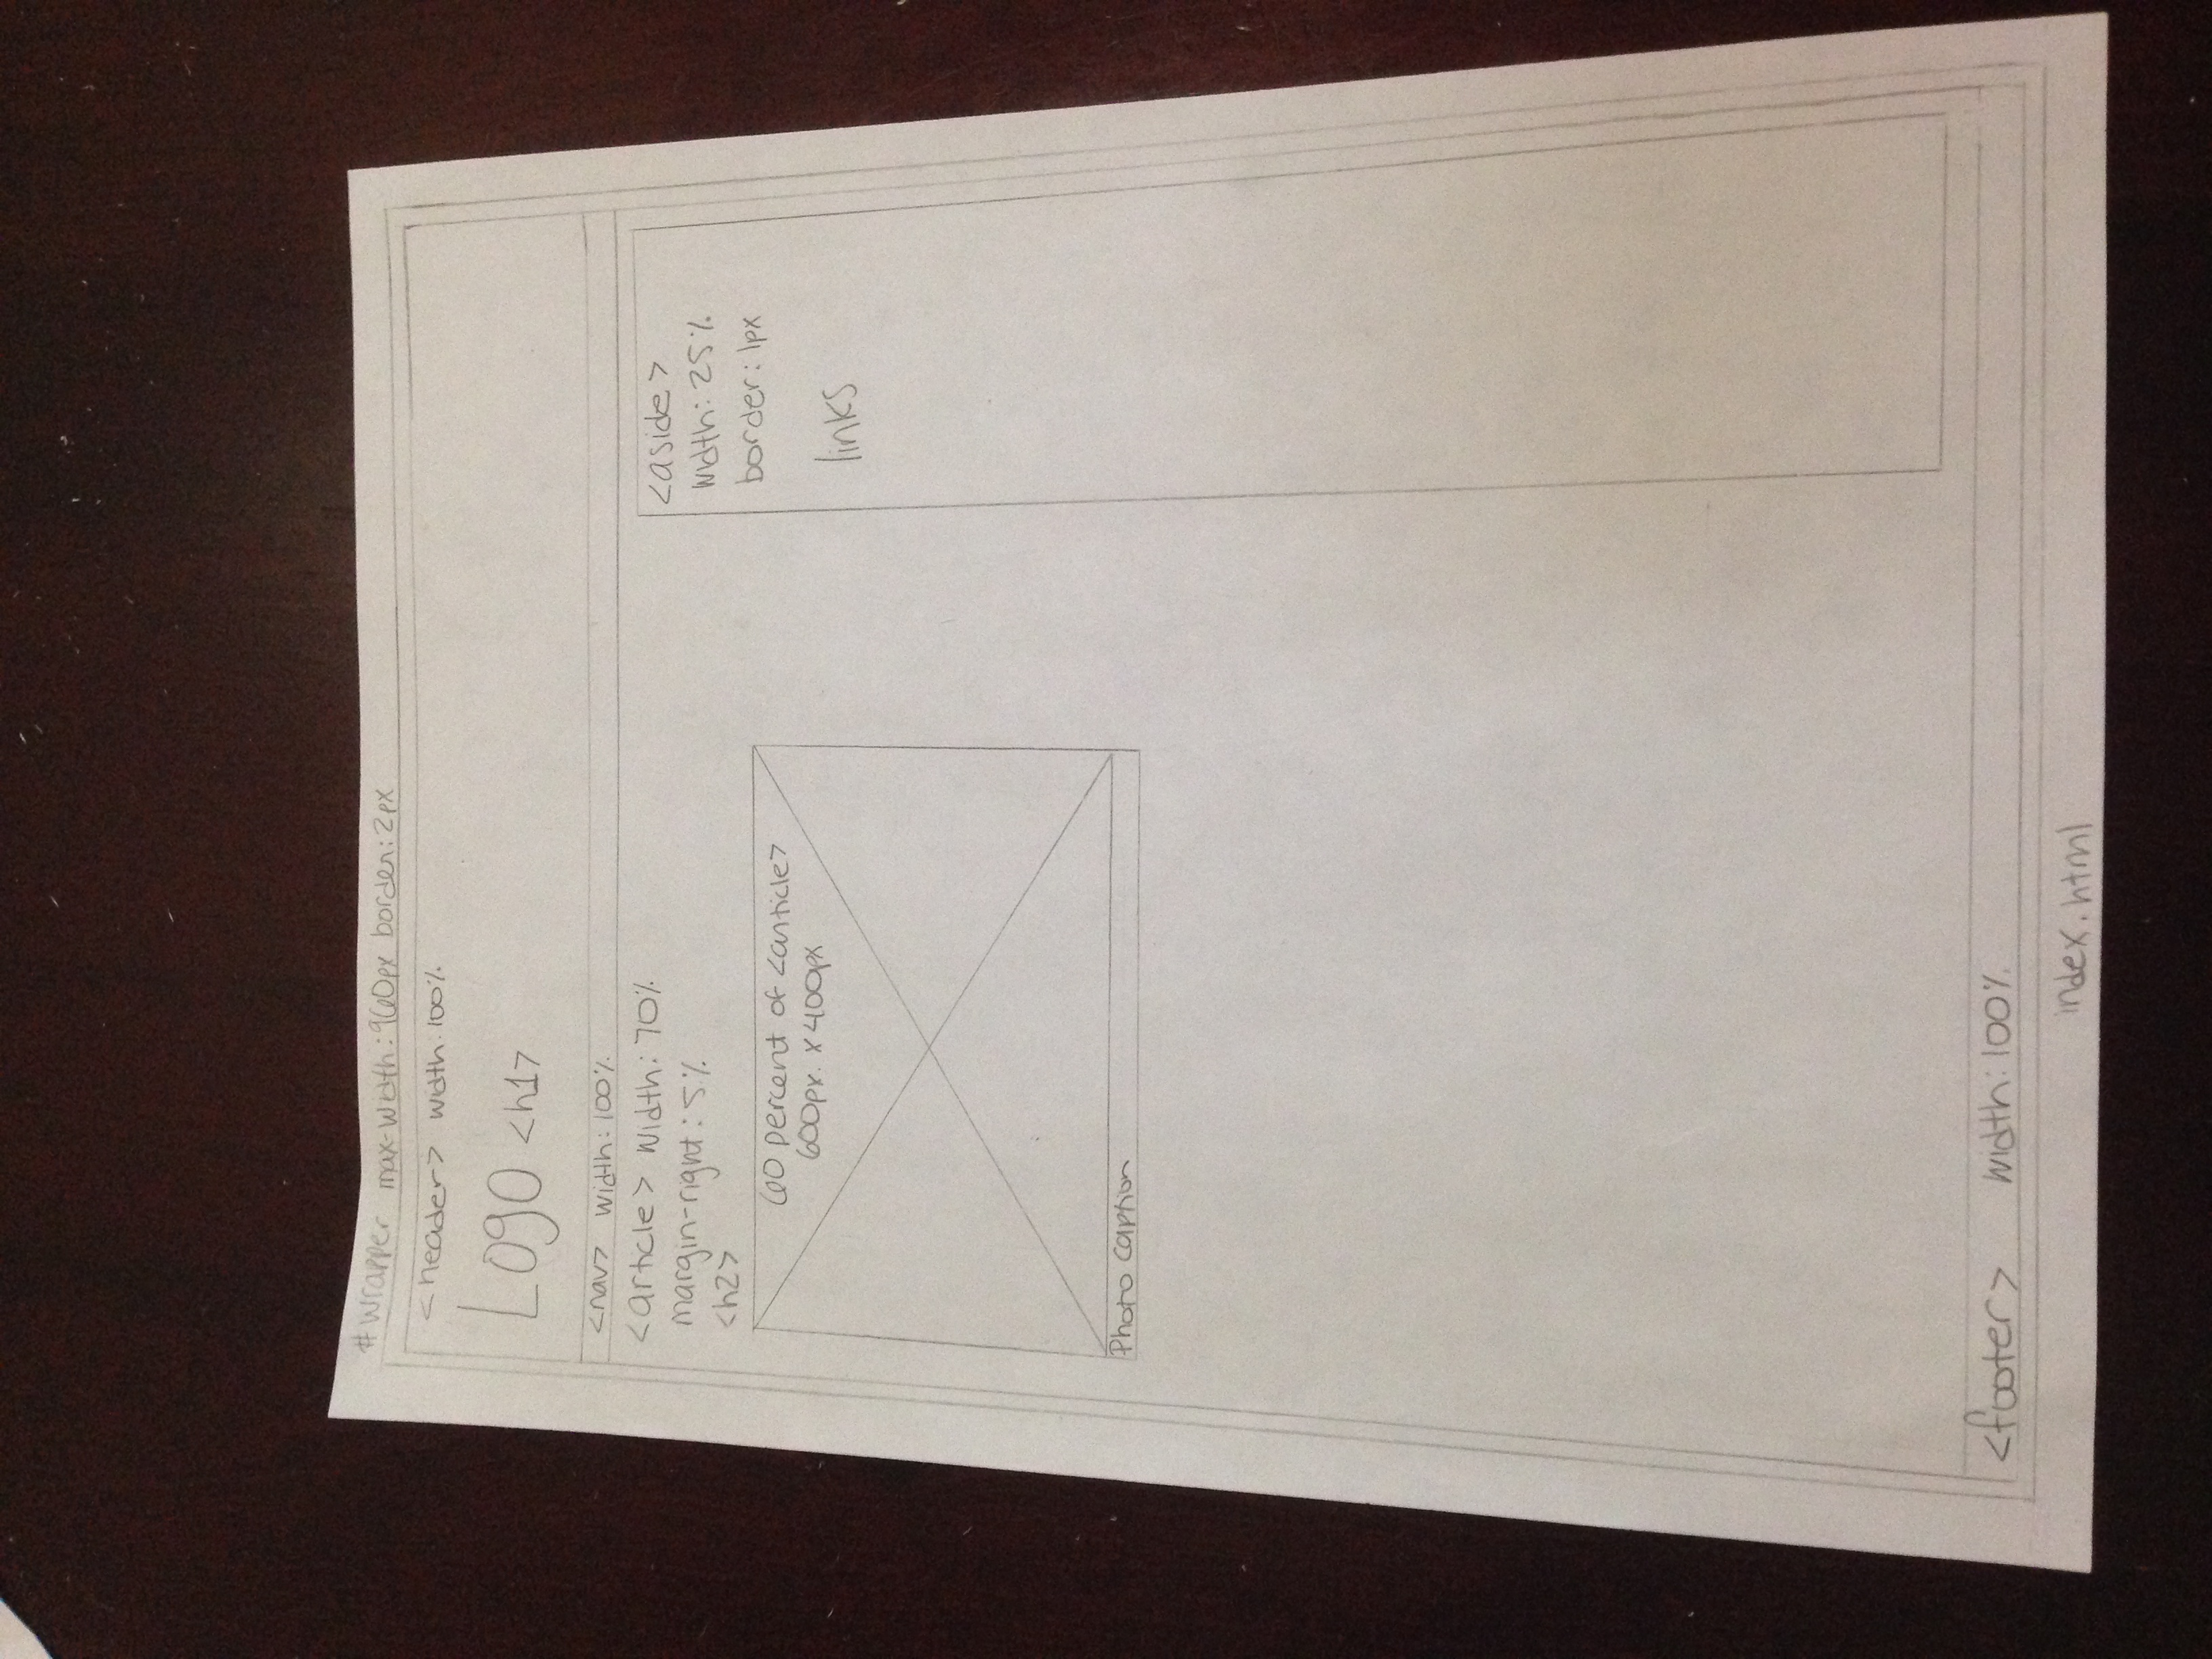 #wrapper max-width: 960px border: 2px
<header> width: 100%
Logo <h1>
<nav> width: 100%
<article> width: 70%
margin-right: 5%
<h2>
60 percent of <article>
600px. x 400px
Photo Caption
<aside>
width: 25%
border: 1px
links
<footer> width: 100%
index.html